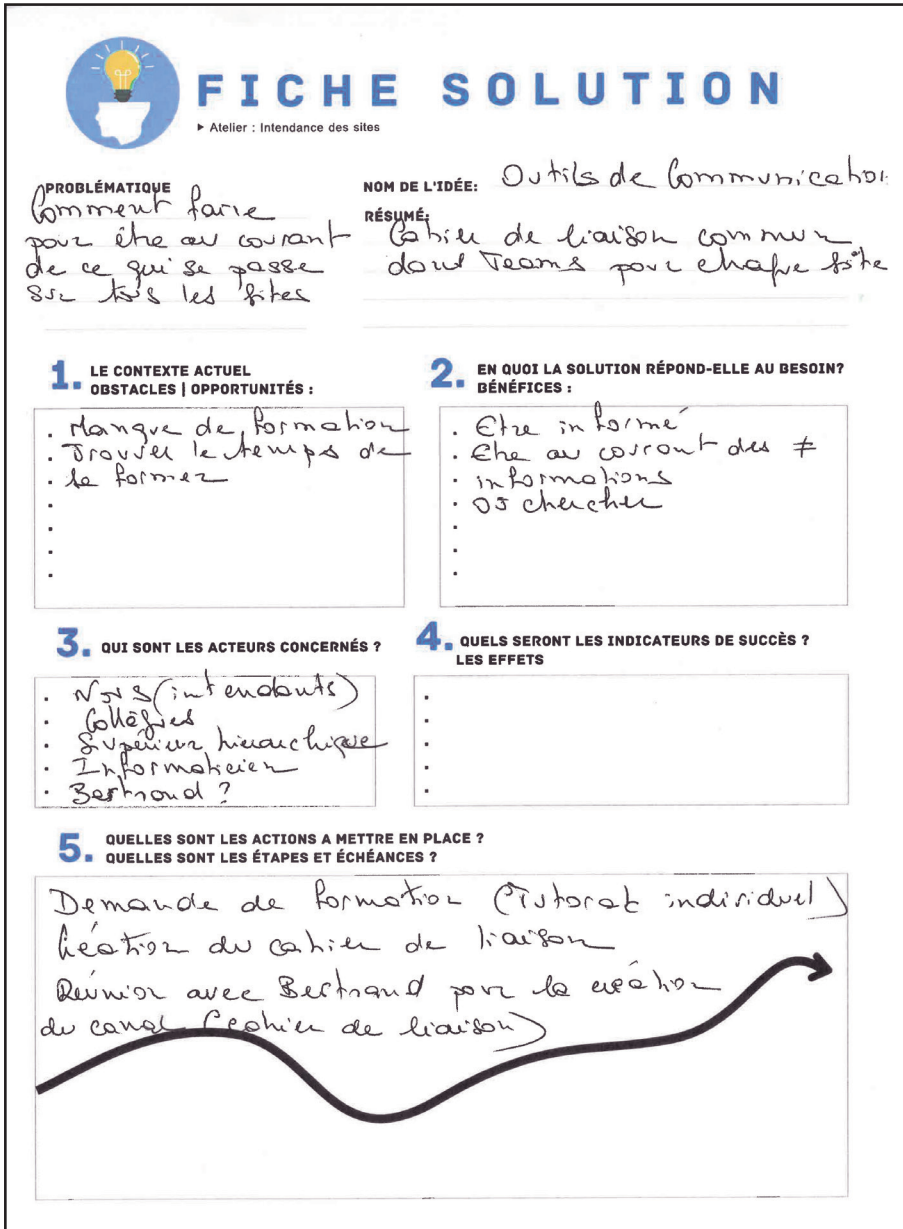 FICHE SOLUTION
▶ Atelier : Intendance des sites
PROBLÉMATIQUE
Comment faire
pour être au courant
de ce qui se passe
sur tous les sites
NOM DE L'IDÉE: Outils de Communication
RÉSUMÉ:
Cahier de liaison commun
dans Teams pour chaque site
1. LE CONTEXTE ACTUEL
OBSTACLES | OPPORTUNITÉS :
. Manque de formation
. Trouver le temps de
. se former
2. EN QUOI LA SOLUTION RÉPOND-ELLE AU BESOIN?
BÉNÉFICES :
. Etre informé
. Etre au courant des ≠
. informations
. où chercher
3. QUI SONT LES ACTEURS CONCERNÉS ?
. Nous (intendants)
. Collègues
. Supérieur hierarchique
. Informaticien
. Bertrand ?
4. QUELS SERONT LES INDICATEURS DE SUCCÈS ?
LES EFFETS
5. QUELLES SONT LES ACTIONS A METTRE EN PLACE ?
QUELLES SONT LES ÉTAPES ET ÉCHÉANCES ?
Demande de formation (Tutorat individuel)
Création du cahier de liaison
Réunion avec Bertrand pour la création
du canal (cahier de liaison)